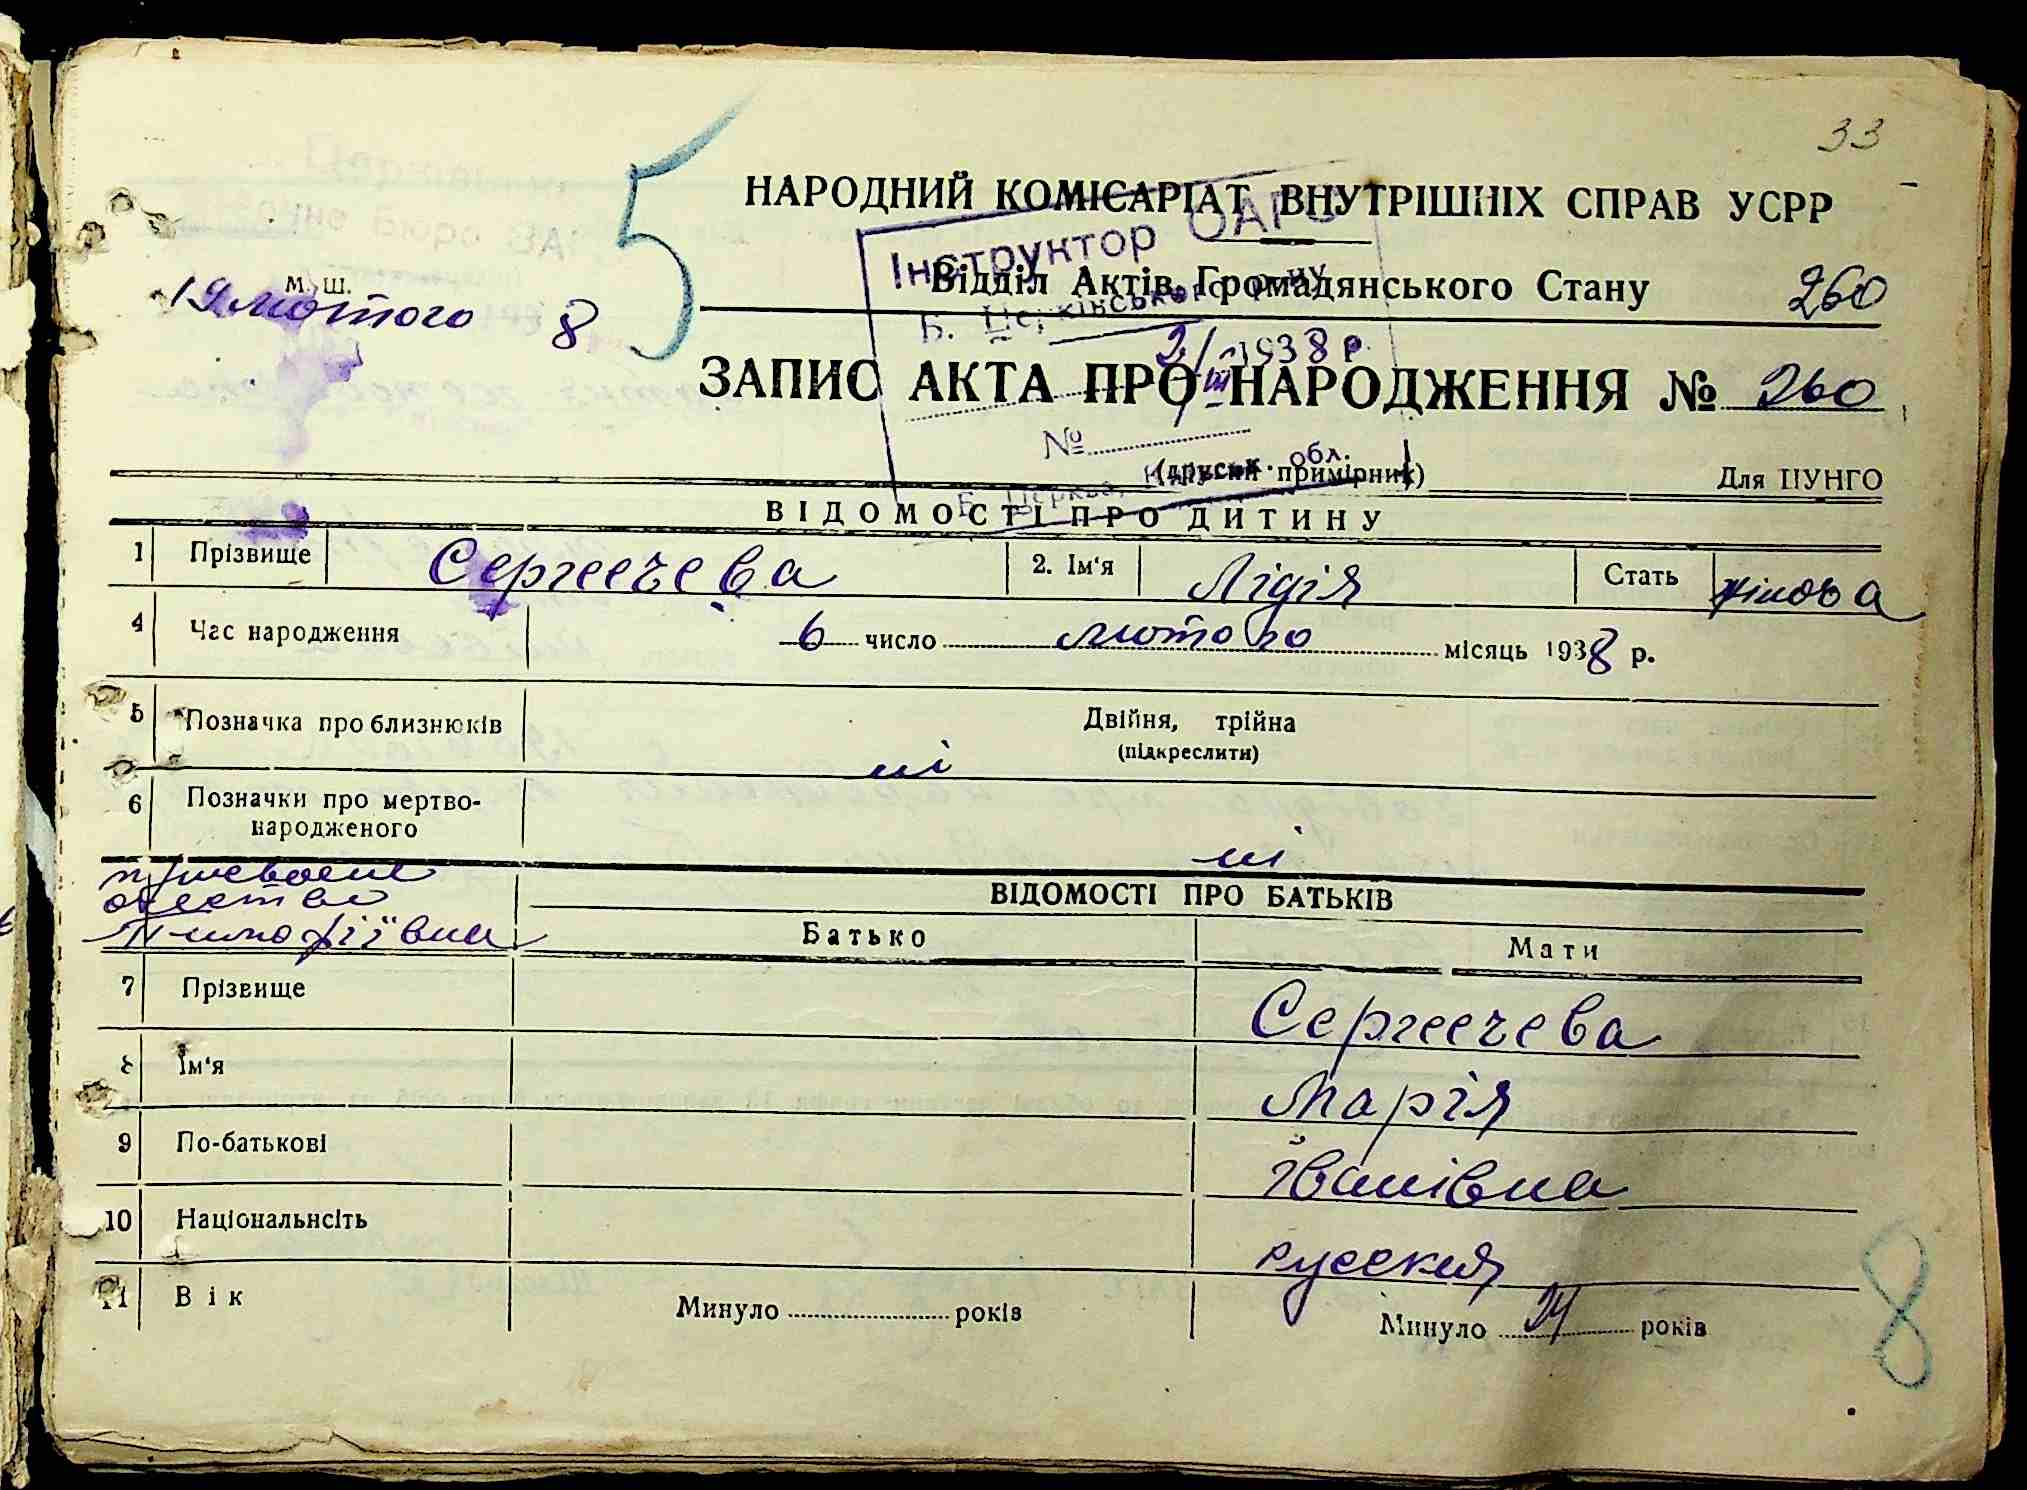 33
5
НАРОДНИЙ КОМІСАРІАТ ВНУТРІШНІХ СПРАВ УСРР
Інструктор ОАГС
м. ш.
Відділ Актів Громадянського Стану 260
19 лютого 8
Б. Церківського р-ну
2/III 1938 р.
ЗАПИС АКТА ПРО НАРОДЖЕННЯ № 260
№
(другий примірник) Для ЦУНГО
Б. Церква, Київськ. обл.
ВІДОМОСТІ ПРО ДИТИНУ
1 Прізвище Сергеечева 2. Ім'я Лідія Стать жінова
4 Час народження 6 число лютого місяць 1938 р.
5 Позначка про близнюків Двійня, трійна
(підкреслити)
ні
6 Позначки про мертво-
народженого
ні
присвоене
отество
Тимофіївна
ВІДОМОСТІ ПРО БАТЬКІВ
Батько Мати
7 Прізвище Сергеечева
8 Ім'я Марія
9 По-батькові Іванівна
10 Національнсіть русския
11 Вік Минуло років Минуло 24 років
8